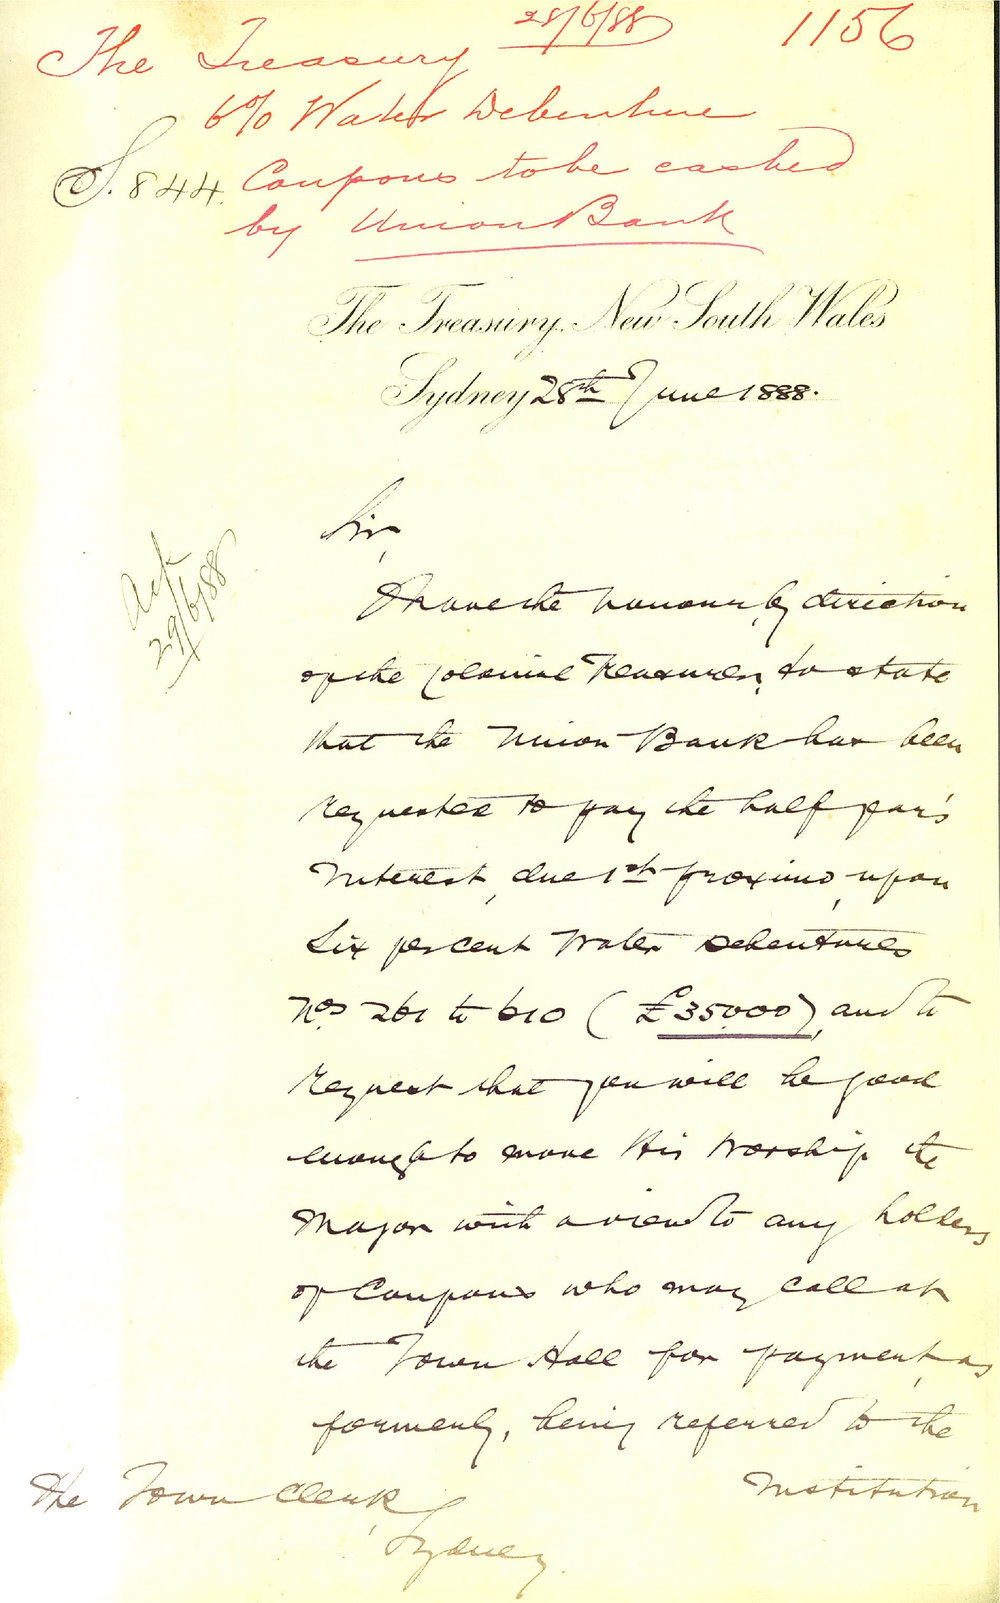 28/6/88
1156
The Treasury
6% Water Debenture
S. 844. Coupons to be cashed
by Union Bank
The Treasury, New South Wales
Sydney 28th June 1888.
Ack
29/6/88
Sir,
I have the honour, by direction
of the Colonial Treasurer, to state
that the Union Bank has been
requested to pay the half year's
Interest, due 1st proximo, upon
Six per cent Water Debentures
Nos 261 to 610 (£35000), and to
request that you will be good
enough to move His Worship the
Mayor with a view to any holders
of Coupons who may call at
the Town Hall for payment, as
formerly, being referred to the
Institution
The Town Clerk,
Sydney.